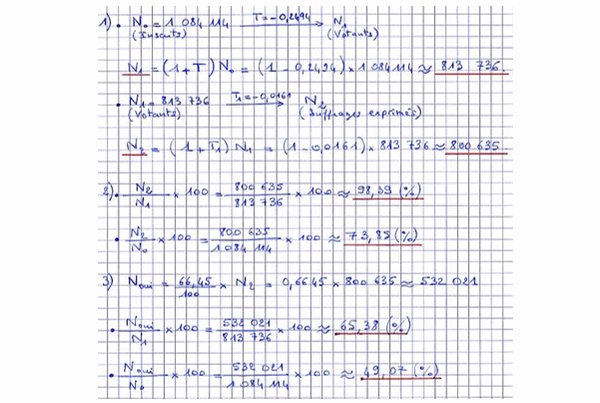 1) • N₀ = 1 084 114 T = -0,2494 → N₁
(Inscrits) (Votants)
N₁ = (1+T) N₀ = (1 - 0,2494) × 1 084 114 ≈ 813 736.
• N₁ = 813 736 T₁ = -0,0161 → N₂
(Votants) (Suffrages exprimés)
N₂ = (1+T₁) N₁ = (1 - 0,0161) × 813 736 ≈ 800 635
2) • N₂/N₁ × 100 = 800 635/813 736 × 100 ≈ 98,39 (%)
• N₂/N₀ × 100 = 800 635/1 084 114 × 100 ≈ 73,85 (%)
3) Noui = 66,45/100 × N₂ = 0,6645 × 800 635 ≈ 532 021
• Noui/N₁ × 100 = 532 021/813 736 × 100 ≈ 65,38 (%)
• Noui/N₀ × 100 = 532 021/1 084 114 × 100 ≈ 49,07 (%)